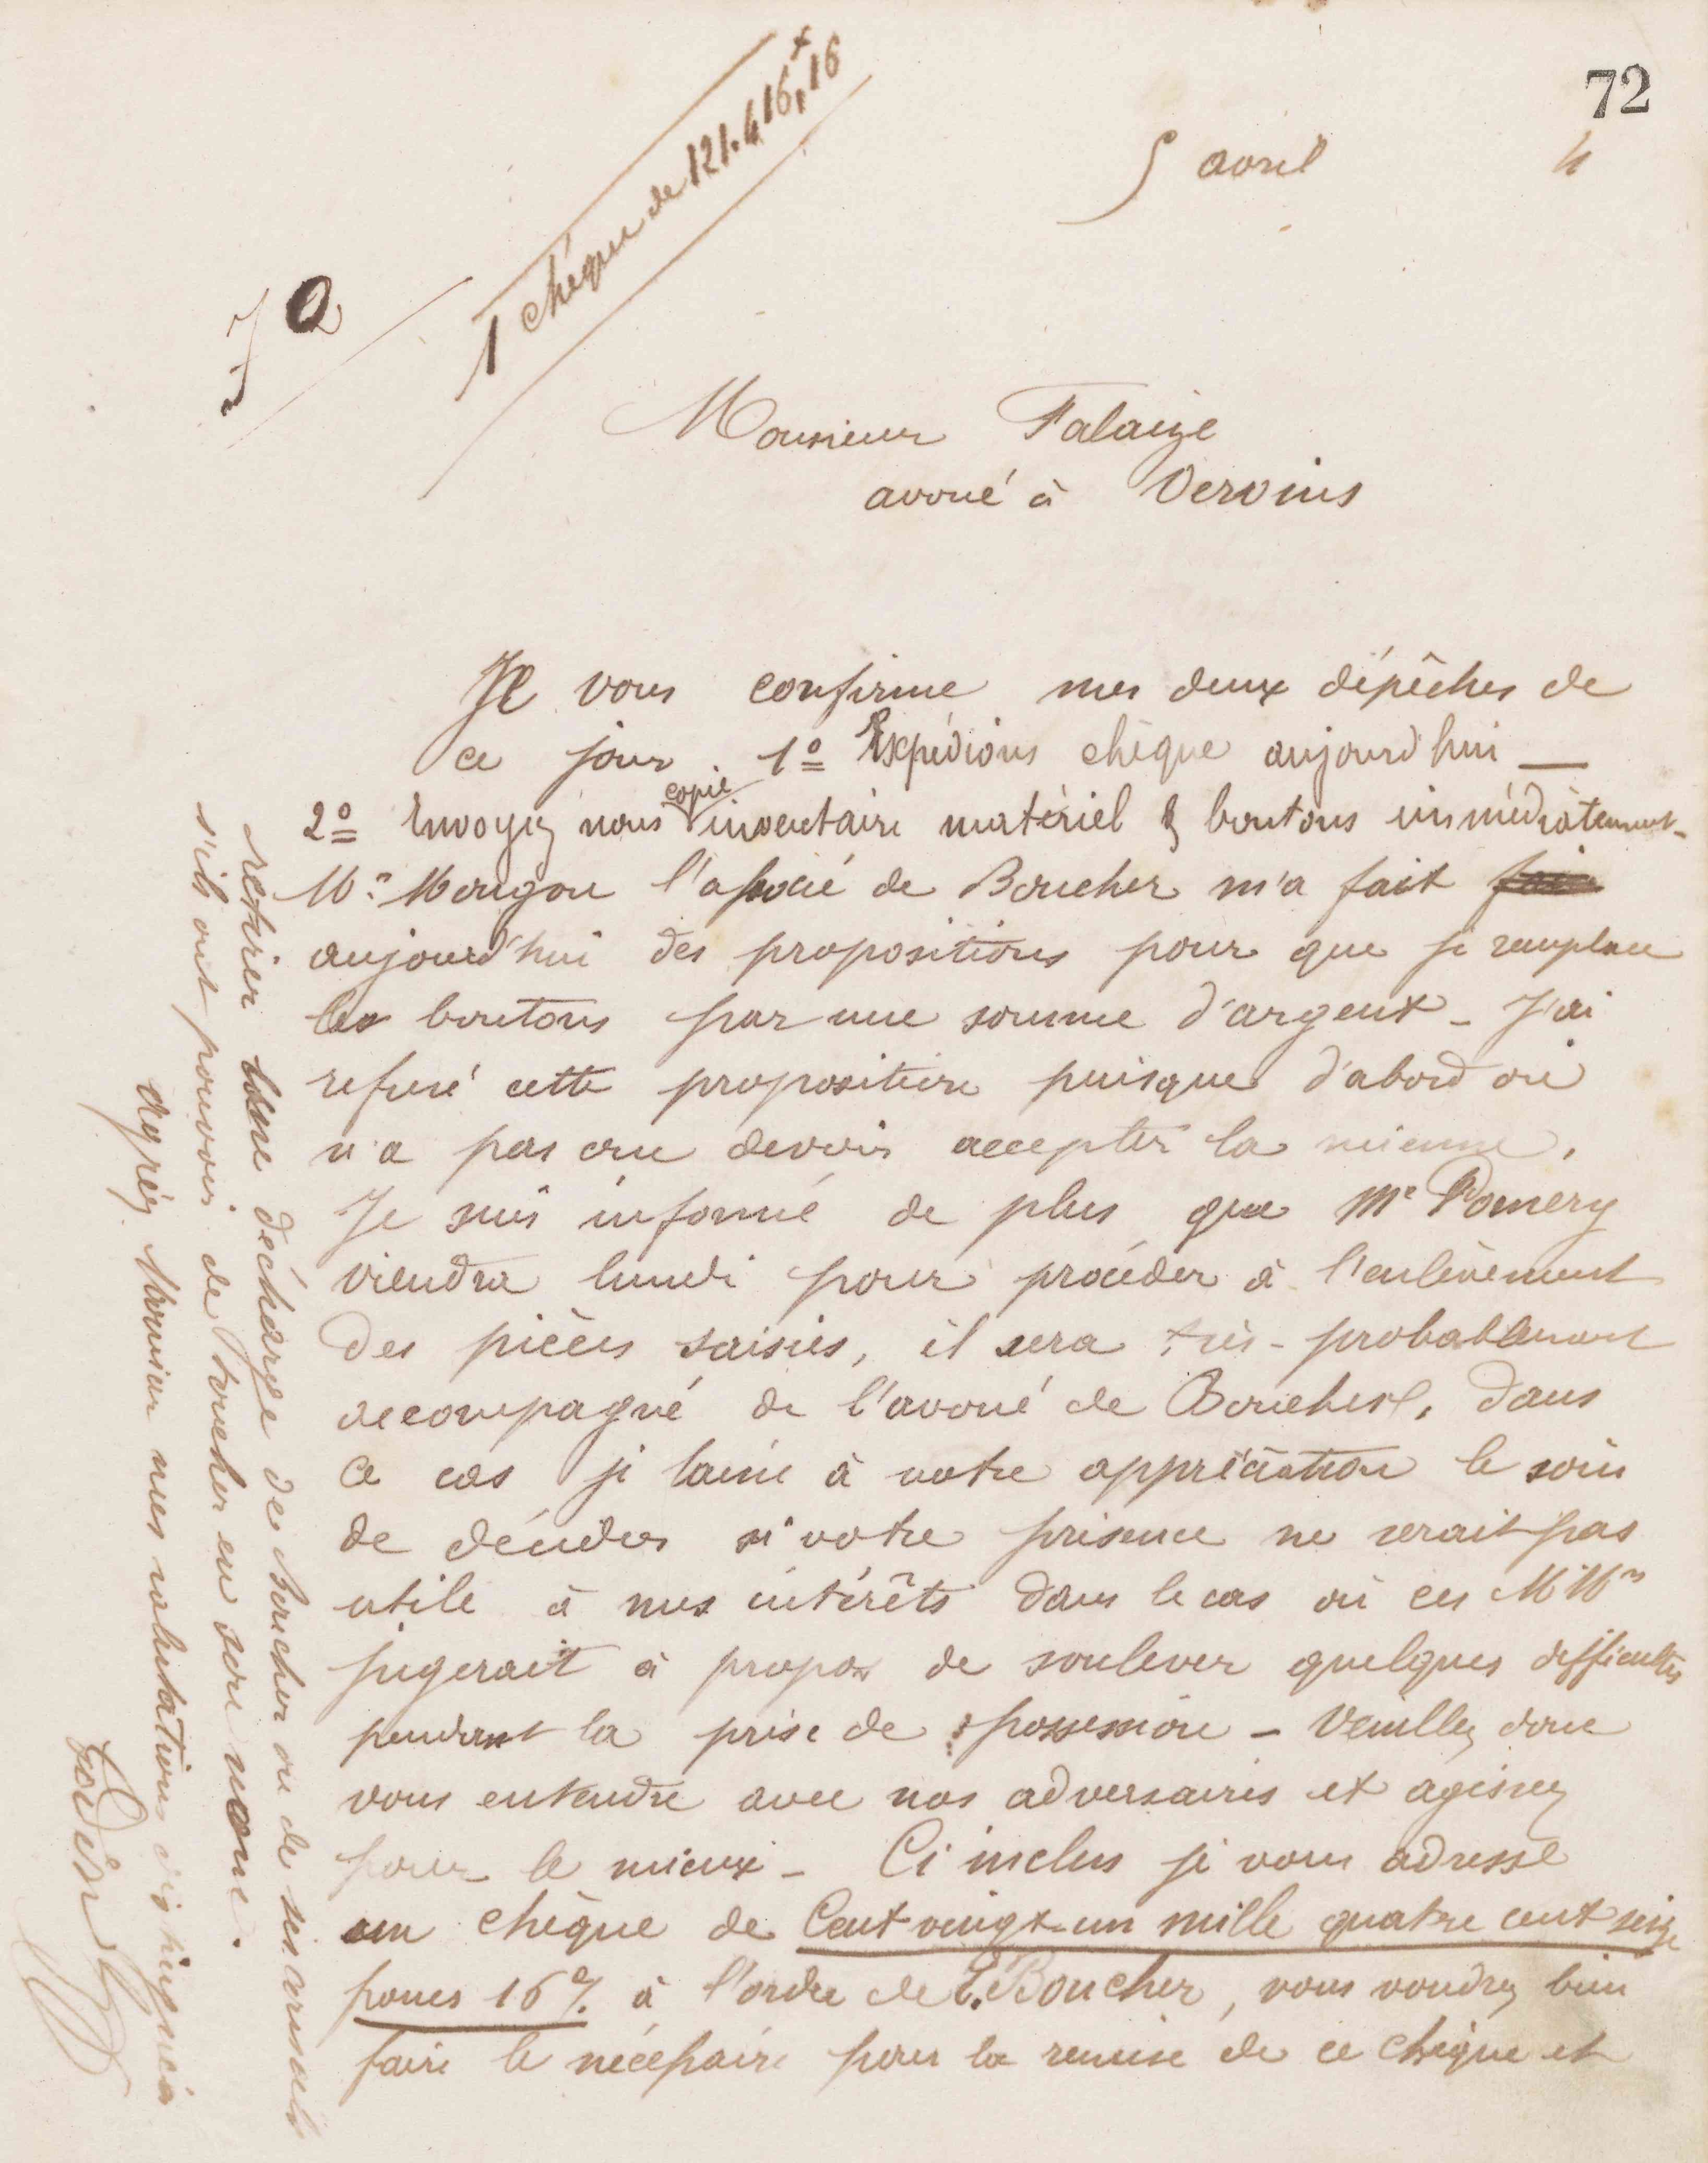 72
5 avril 4
1 chèque de 121.416,16
Monsieur Falaize
avoué à Vervins
Je vous confirme mes deux dépêches de
ce jour. 1º Expédions chèque aujourd'hui —
2º Envoyez nous copie inventaire matériel & boutons immédiatement -
Mr. Mougon l'associé de Boucher m'a fait
aujourd'hui des propositions pour que je remplace
les boutons par une somme d'argent - J'ai
refusé cette proposition puisque d'abord on
n'a pas cru devoir accepter la mienne.
Je suis informé de plus que Me Pomery
viendra lundi pour procéder à l'enlèvement
des pièces saisies, il sera très-probablement
accompagné de l'avoué de Boucher. Dans
ce cas je laisse à votre appréciation le soin
de décider si votre présence ne serait pas
utile à mes intérêts dans le cas où ces MMrs
jugerait à propos de soulever quelques difficultés
pendant la prise de possession - Veuillez donc
vous entendre avec nos adversaires et agissez
pour le mieux - Ci inclus je vous adresse
un chèque de Cent vingt-un mille quatre cent seize
francs 16 % à l'ordre de E. Boucher, vous voudrez bien
faire le nécessaire pour la remise de ce chèque et
retirer bonne décharge de Boucher ou de ses avocats
s'ils ont pouvoir de Boucher en son nom.
Agréez Monsieur mes salutations distinguées
Godin